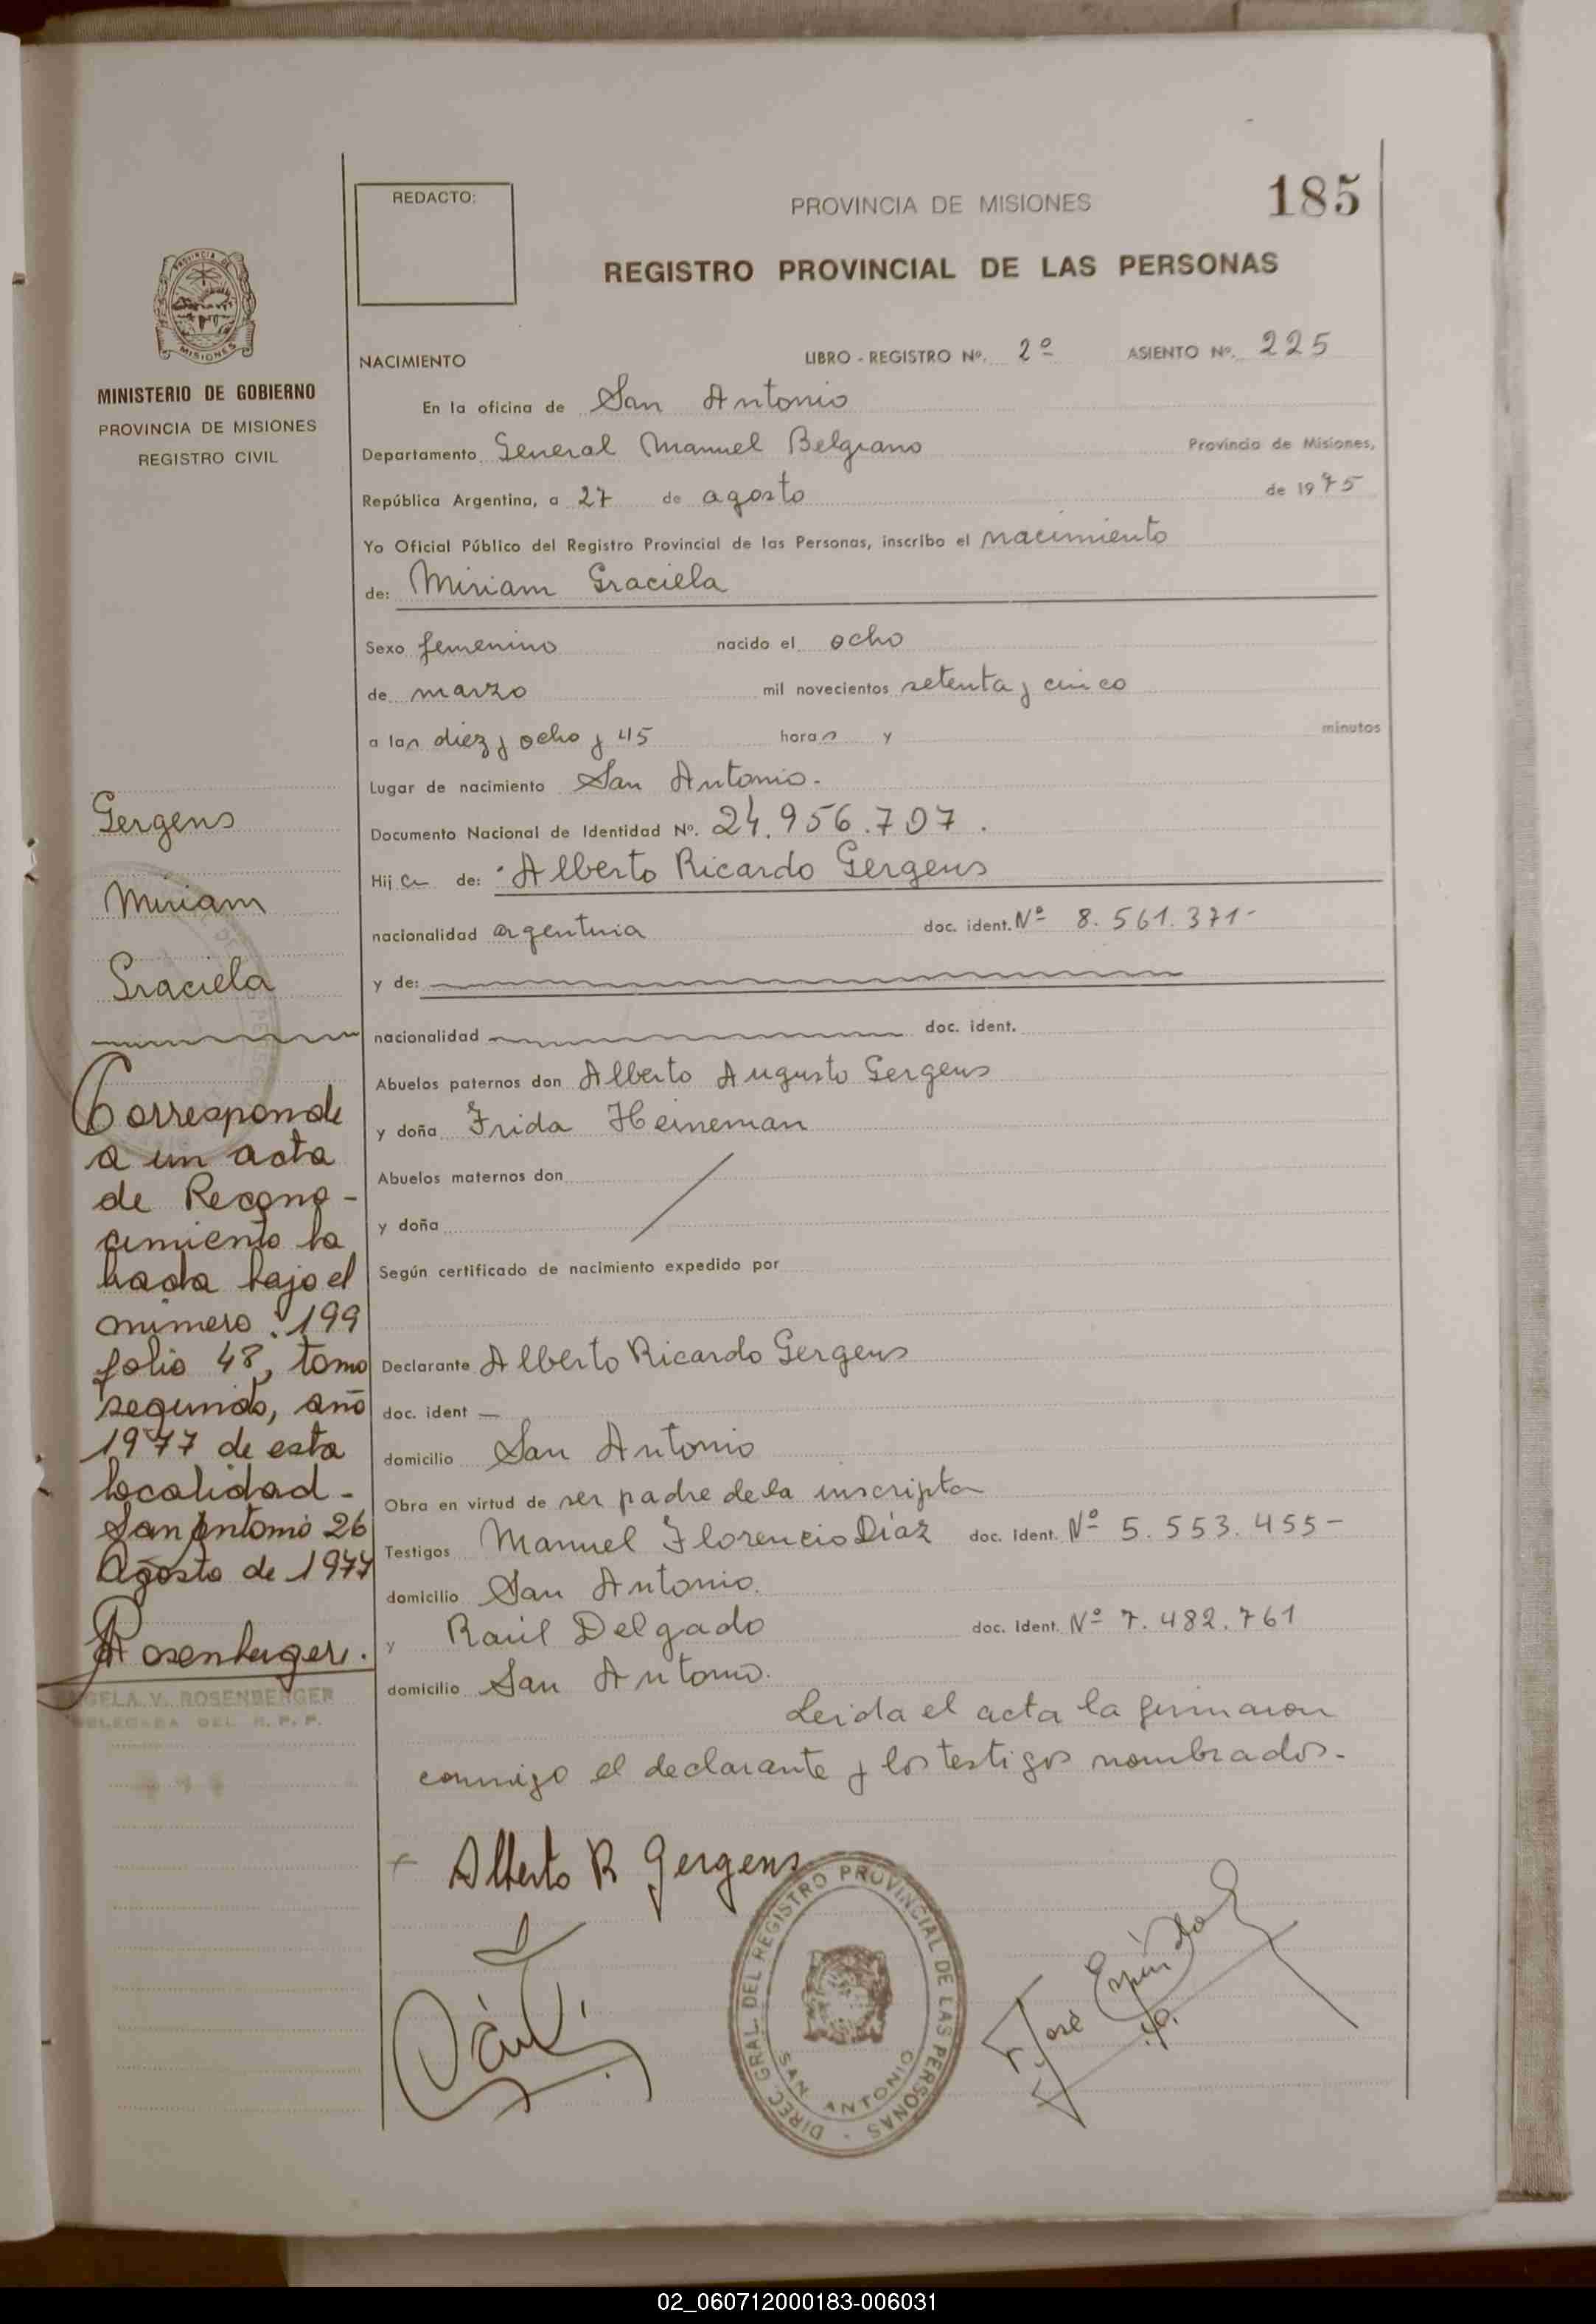 REDACTO:
PROVINCIA DE MISIONES
185
REGISTRO PROVINCIAL DE LAS PERSONAS
PROVINCIA DE
MISIONES
MINISTERIO DE GOBIERNO
PROVINCIA DE MISIONES
REGISTRO CIVIL
NACIMIENTO LIBRO - REGISTRO Nº. 2º ASIENTO Nº. 225
En la oficina de San Antonio
Departamento General Manuel Belgrano Provincia de Misiones,
República Argentina, a 27 de agosto de 1975
Yo Oficial Público del Registro Provincial de las Personas, inscribo el nacimiento
de: Miriam Graciela
Sexo femenino nacido el ocho
de marzo mil novecientos setenta y cinco
a las diez y ocho y 45 horas y minutos
Lugar de nacimiento San Antonio.
Documento Nacional de Identidad Nº. 24.956.707.
Hija de: Alberto Ricardo Gergens
nacionalidad argentina doc. ident. Nº 8.561.371-
y de:
nacionalidad doc. ident.
Abuelos paternos don Alberto Augusto Gergens
y doña Frida Heineman
Abuelos maternos don
y doña
Según certificado de nacimiento expedido por
Declarante Alberto Ricardo Gergens
doc. ident —
domicilio San Antonio
Obra en virtud de ser padre de la inscripta
Testigos Manuel Florencio Díaz doc. ident. Nº 5.553.455-
domicilio San Antonio.
y Raúl Delgado doc. ident. Nº 7.482.761
domicilio San Antonio.
Leida el acta la firmaron
conmigo el declarante y los testigos nombrados-
Gergens
Miriam
Graciela
Corresponde
a un acta
de Recono-
cimiento la
brada bajo el
número: 199
folio 48, tomo
segundo, año
1977 de esta
localidad-
San Antonio 26
Agosto de 1977
Rosenberger.
ANGELA V. ROSENBERGER
DELEGADA DEL R. P. P.
Alberto R Gergens
DIREC. GRAL. DEL REGISTRO PROVINCIAL DE LAS PERSONAS -
SAN ANTONIO
José Espíndola
02_060712000183-006031